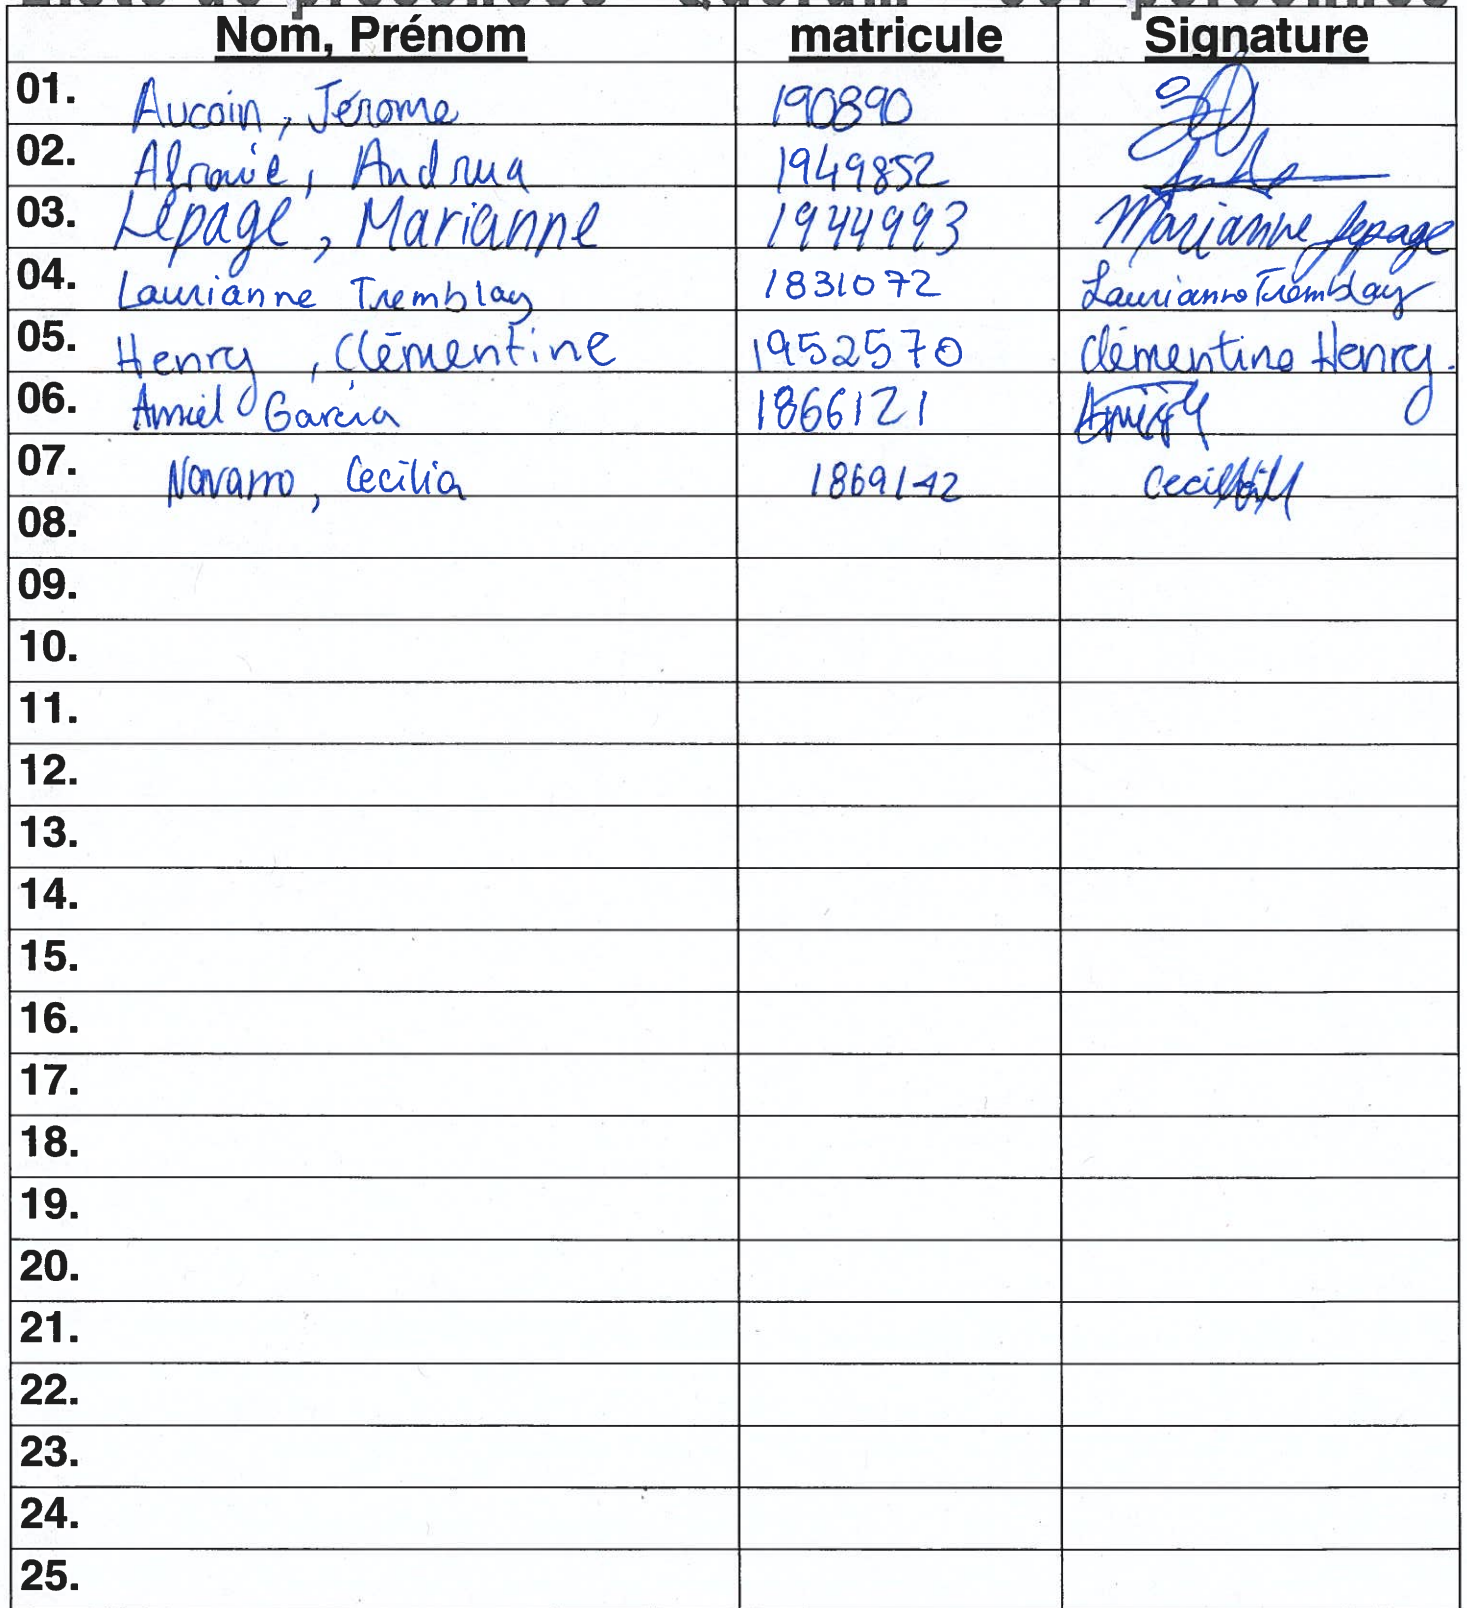 Nom, Prénom matricule Signature
01. Aucoin, Jérome 190890
02. Andrua 1949852
03. Lepage, Marianne 1944993 Marianne Lepage
04. Laurianne Tremblay 1831072 Laurianne Tremblay
05. Henry, Clémentine 1952570 Clémentine Henry.
06. Amiel Garcia 1866121
07. Navarro, Cecilia 1869142
08.
09.
10.
11.
12.
13.
14.
15.
16.
17.
18.
19.
20.
21.
22.
23.
24.
25.